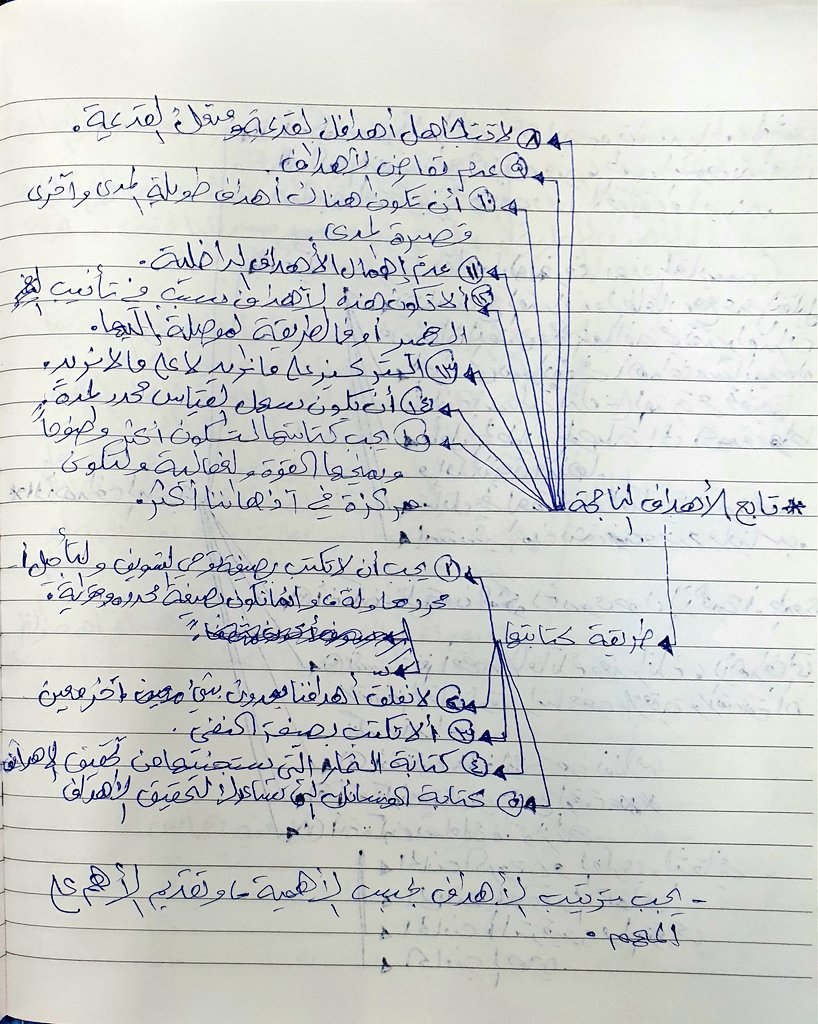 ٨ لا تتجاهل أهدافك القديمة ومثلك القديمة.
٩ عدم تعارض الأهداف.
١٠ أن تكون هناك أهداف طويلة المدى وأخرى
قصيرة المدى.
١١ عدم إهمال الأهداف الداخلية.
١٢ ألا تكون هذه الأهداف سبب في تأنيب
الضمير أو الطريقة الموصلة إليها.
١٣ التركيز على ما نريد لا على ما لا نريد.
١٤ أن يكون سهل القياس محدد المدة.
١٥ يجب كتابتها لتكون أكثر وضوحاً
ويمنحها القوة والفعالية ولتكون
مركزة في أذهاننا أكثر.
* تابع الأهداف الناجحة
طريقة كتابتها
١ يجب أن لا تكتب بصيغة توحي التسويف والتأجيل أ
مجرد محاولة، وإنما تكون بصيغة محددة
٢ لا نعلق أهدافنا بشيء معين آخر معين
٣ ألا تكتب بصيغة النفي.
٤ كتابة الثمار التي ستجنيها من تحقيق الأهداف
٥ كتابة الوسائل التي تساعدك لتحقيق الأهداف
- يجب ترتيب الأهداف بحسب الأهمية وتقديم الأهم على
المهم.